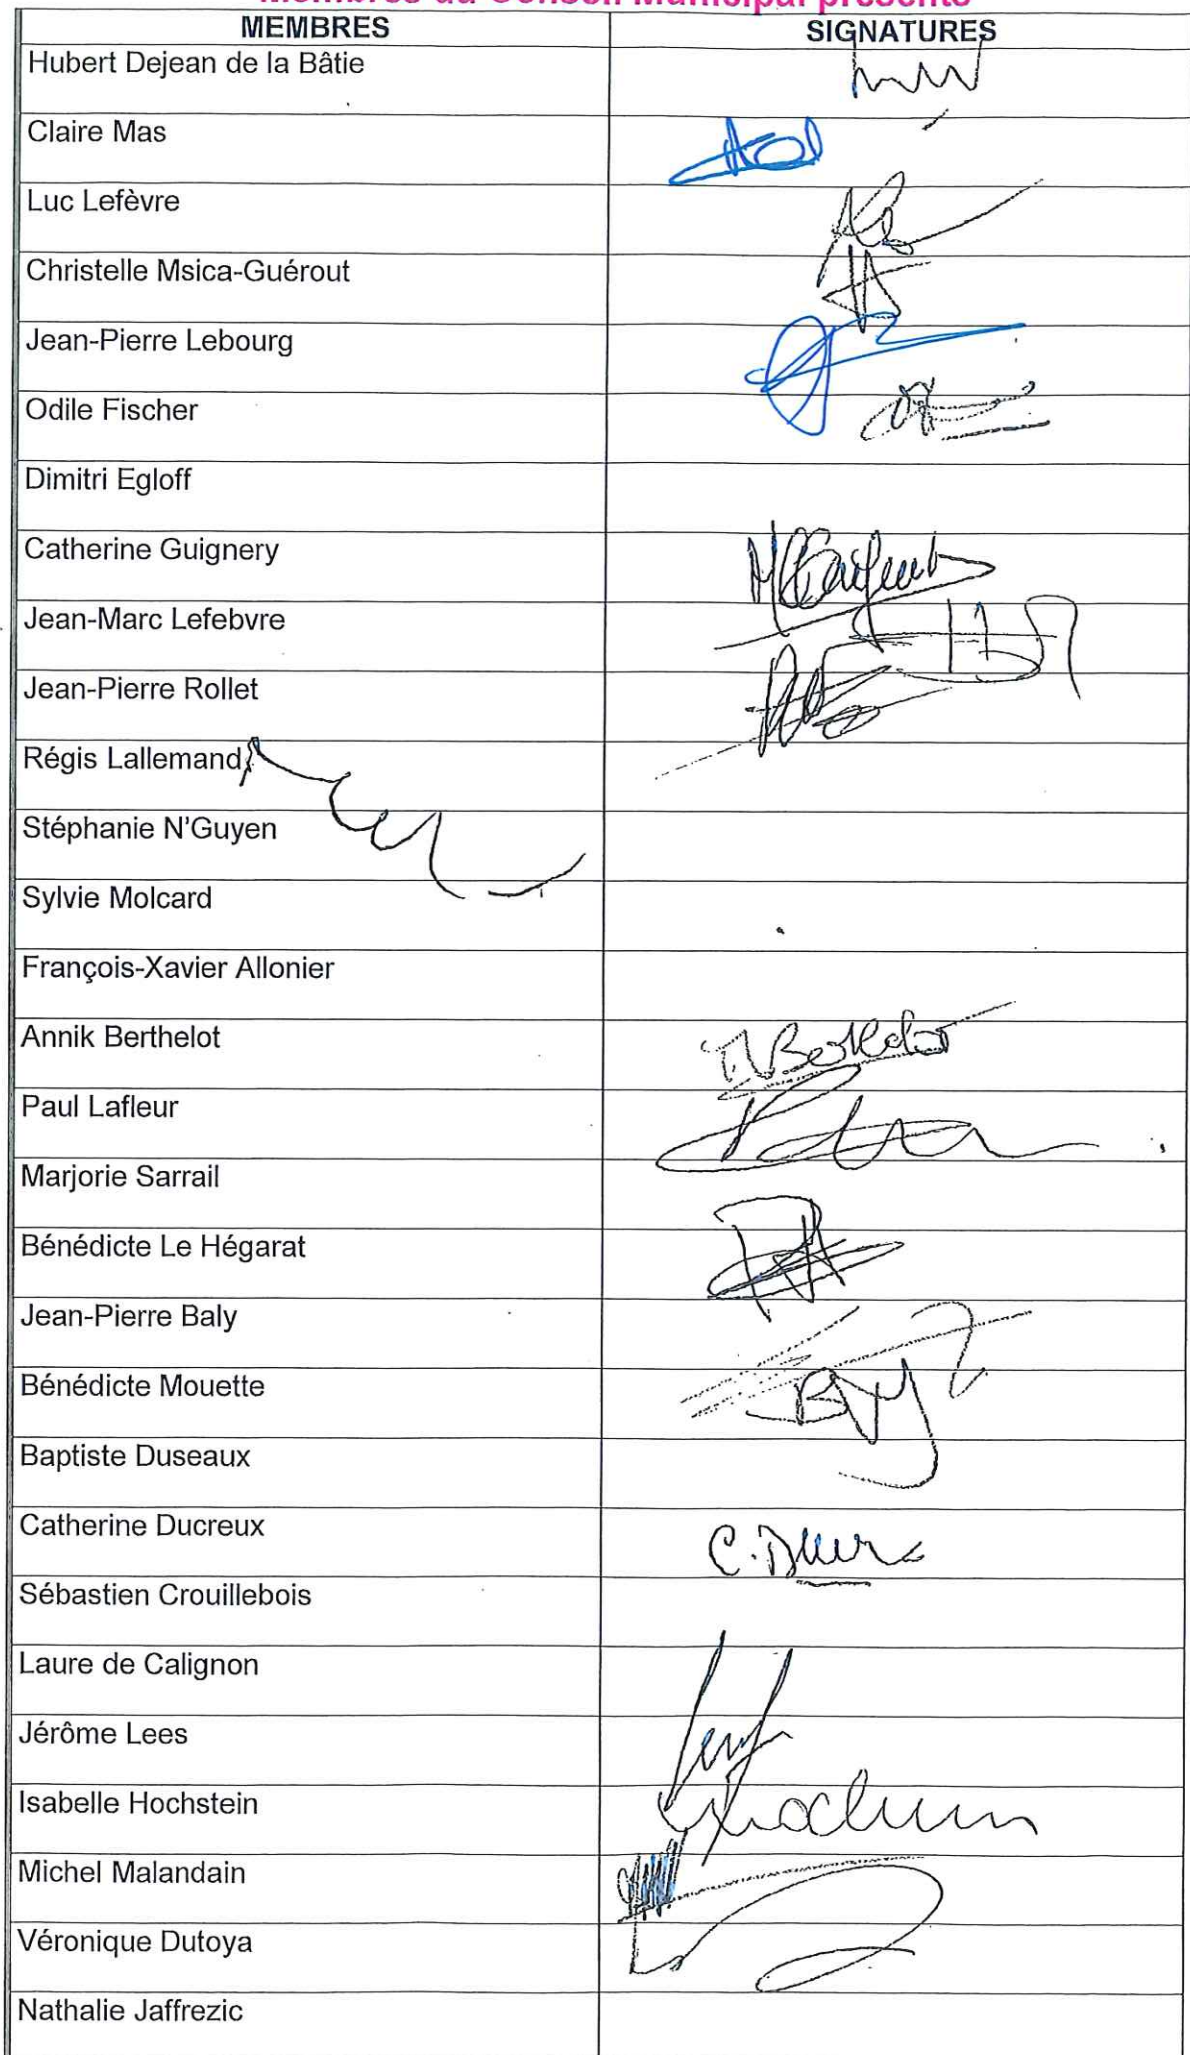 Membres du Conseil Municipal présents
MEMBRES SIGNATURES
Hubert Dejean de la Bâtie
Claire Mas
Luc Lefèvre
Christelle Msica-Guérout
Jean-Pierre Lebourg
Odile Fischer
Dimitri Egloff
Catherine Guignery
Jean-Marc Lefebvre
Jean-Pierre Rollet
Régis Lallemand
Stéphanie N'Guyen
Sylvie Molcard
François-Xavier Allonier
Annik Berthelot
Paul Lafleur
Marjorie Sarrail
Bénédicte Le Hégarat
Jean-Pierre Baly
Bénédicte Mouette
Baptiste Duseaux
Catherine Ducreux
Sébastien Crouillebois
Laure de Calignon
Jérôme Lees
Isabelle Hochstein
Michel Malandain
Véronique Dutoya
Nathalie Jaffrezic